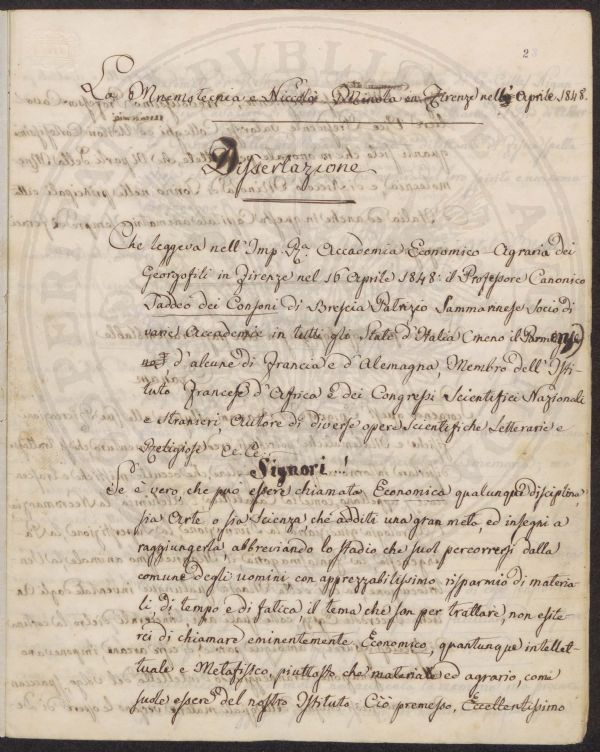 23
La Mnemotecnia e Niccolò in Firenze nell' Aprile 1848.
Dissertazione
Che leggeva nell' Imp. Ra. Accademia Economico-Agraria dei
Georgofili in Firenze nel 16 Aprile 1848: il Professore Canonico
Taddeo dei Consoni di Brescia Patrizio Sammarinese Socio di
varie Accademie in tutti gli Stati d'Italia (meno il Parmense)
d'alcune di Francia e d'Alemagna, Membro dell' Isti-
tuto Francese d'Affrica e dei Congressi Scientifici Nazionali
e stranieri, Autore di diverse opere Scientifiche Letterarie e
Religiose ec. ec.
Signori!
Se è vero, che può essere chiamata Economica qualunque disciplina,
sia Arte o sia Scienza che additi una gran meta, ed insegni a
raggiungerla abbreviando lo stadio che suol percorrersi dalla
comune degli uomini, con apprezzabilissimo risparmio di materia-
li, di tempo e di fatica, il tema che son per trattare, non esite-
rei di chiamare eminentemente Economico, quantunque intellet-
tuale e Metafisico, piuttosto che materiale ed agrario, come
suole essere del nostro Istituto: Ciò premesso, Eccellentissimo